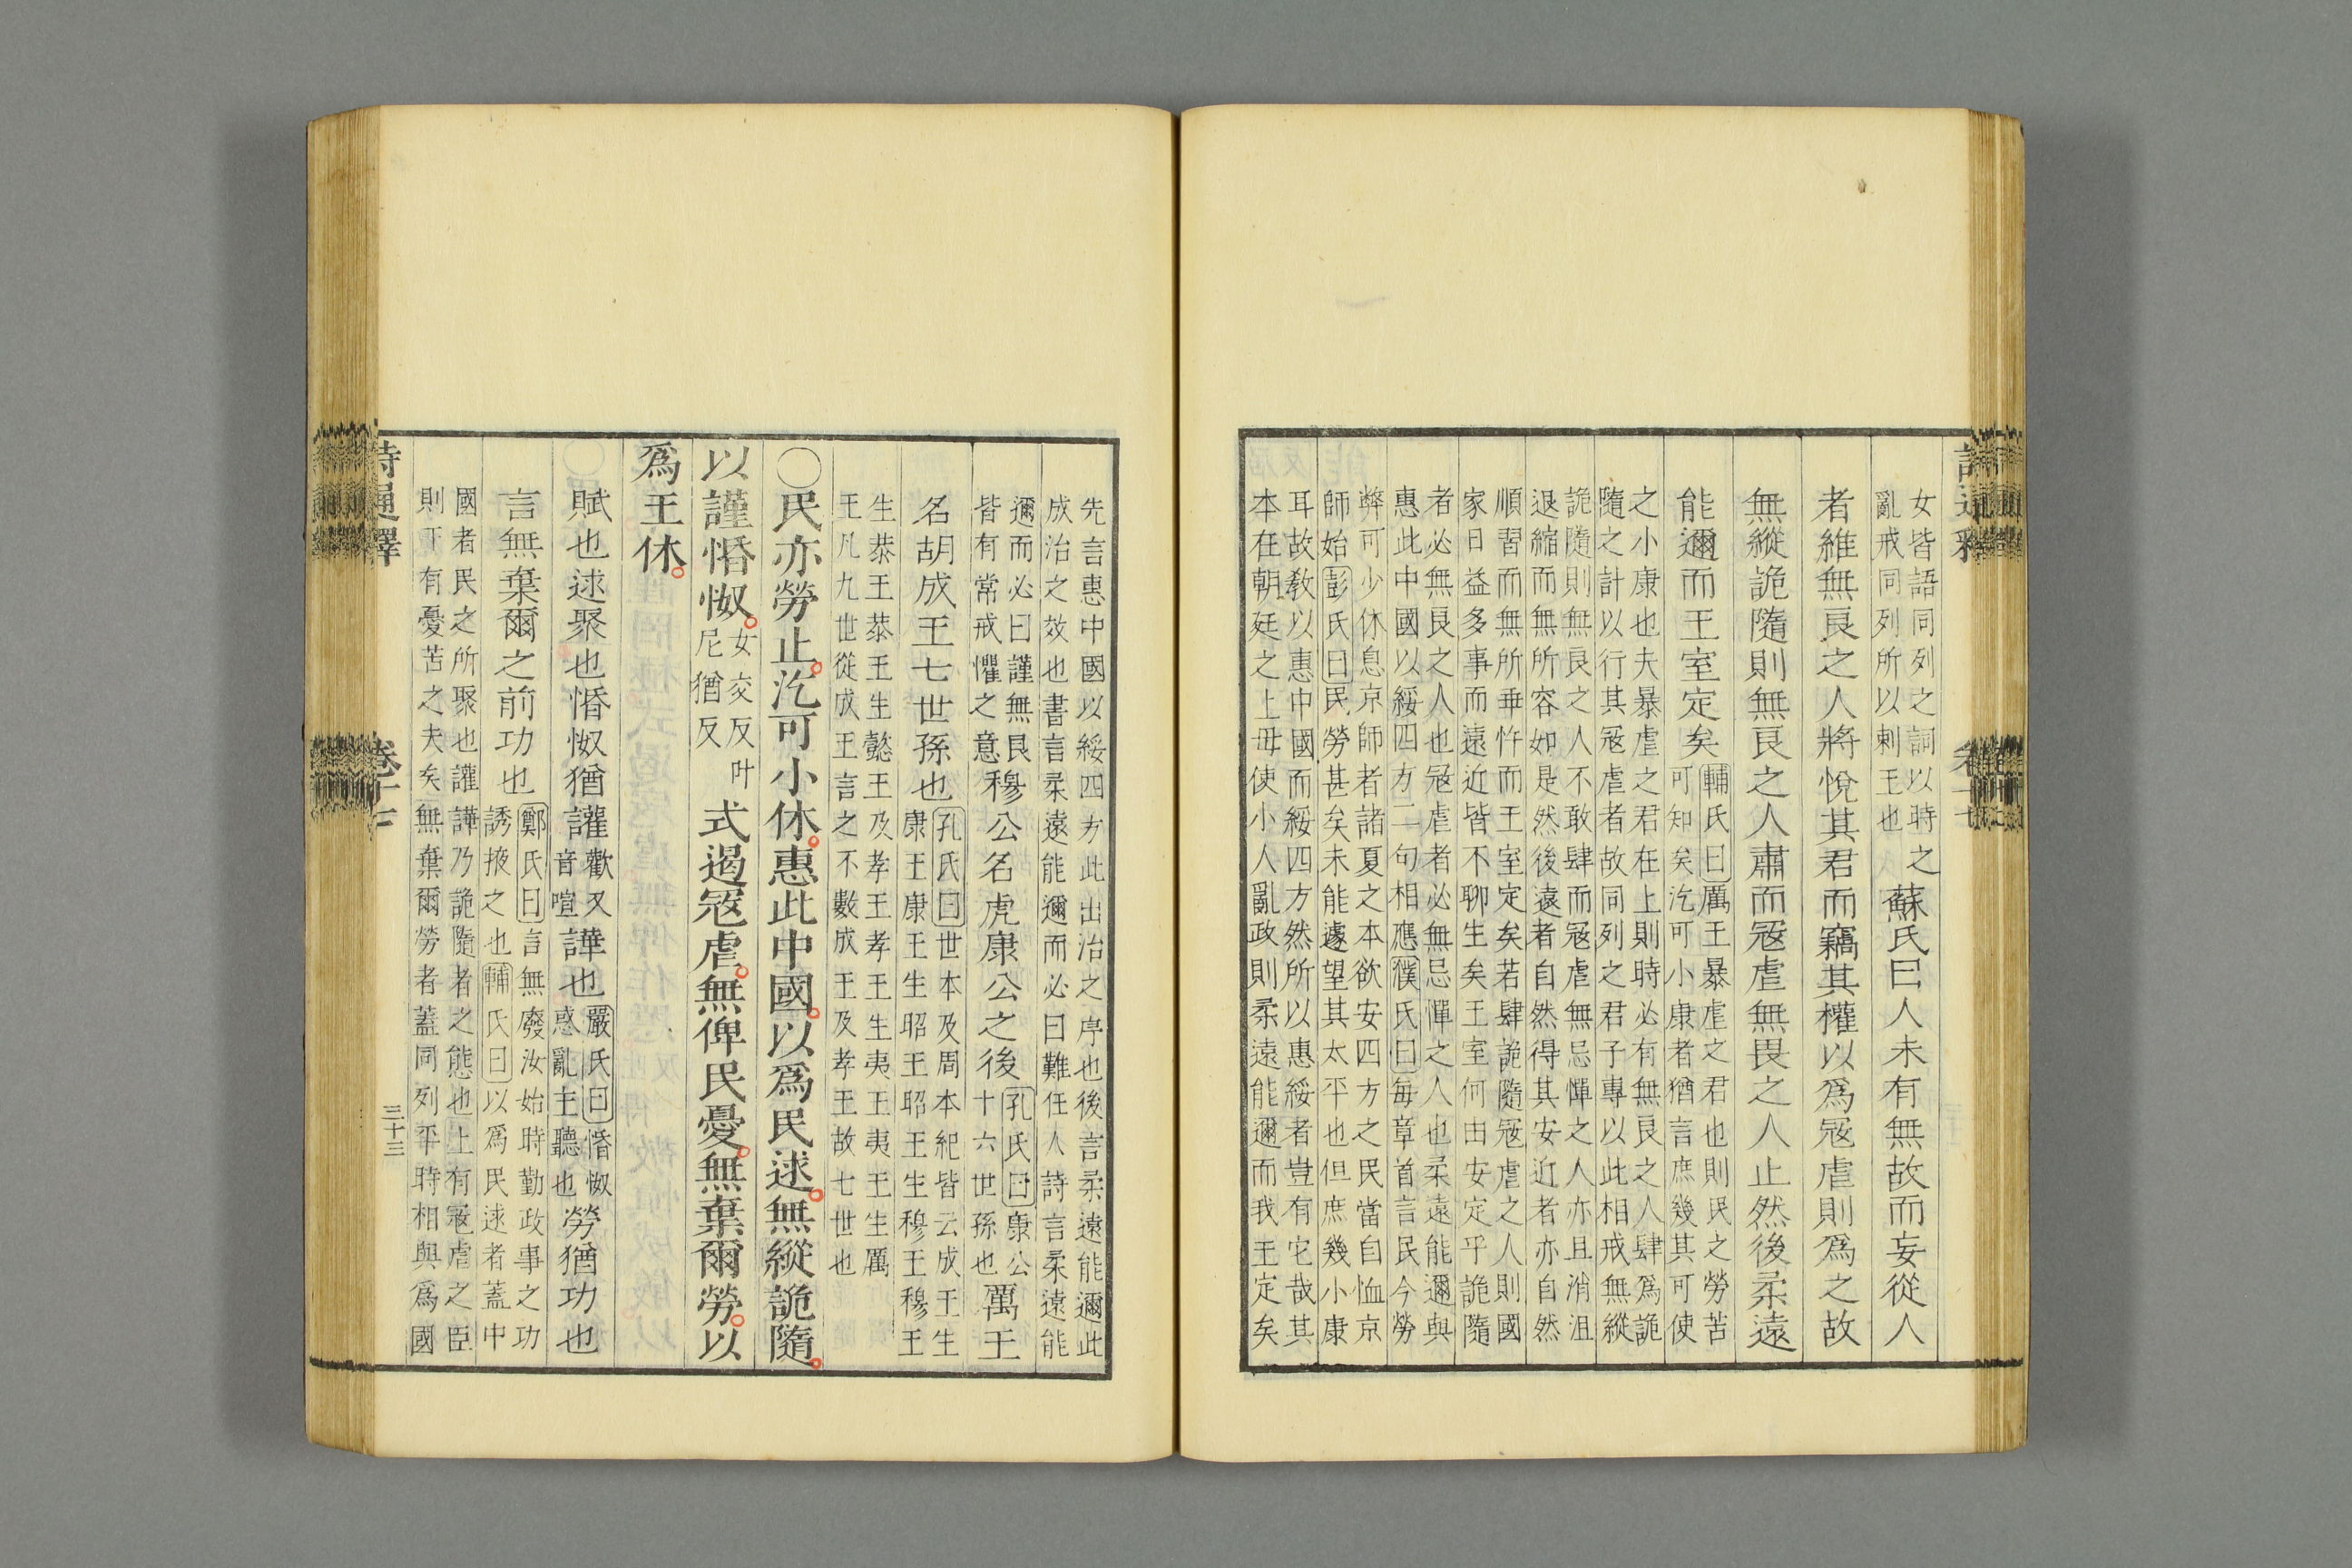 女皆語同列之詞以時之
亂戒同列所以刺王也
蘇氏曰人未有無故而妄從人
者維無良之人將悅其君而竊其權以爲冦虐則爲之故
無縱詭隨則無良之人肅而冦虐無畏之人止然後柔遠
能邇而王室定矣
輔氏曰厲王暴虐之君也則民之勞苦
可知矣汔可小康者猶言庶幾其可使
之小康也夫暴虐之君在上則時必有無良之人肆爲詭
隨之計以行其冦虐者故同列之君子專以此相戒無縱
詭隨則無良之人不敢肆而冦虐無忌憚之人亦且消沮
退縮而無所容如是然後遠者自然得其安近者亦自然
順習而無所乖忤而王室定矣若肆詭隨冦虐之人則國
家日益多事而遠近皆不聊生矣王室何由安定乎詭隨
者必無良之人也冦虐者必無忌憚之人也柔遠能邇與
惠此中國以綏四方二句相應濮氏曰每章首言民今勞
弊可少休息京師者諸夏之本欲安四方之民當自恤京
師始彭氏曰民勞甚矣未能遽望其太平也但庶幾小康
耳故敎以惠中國而綏四方然所以惠綏者豈有它哉其
本在朝廷之上毋使小人亂政則柔遠能邇而我王定矣
先言惠中國以綏四方此出治之序也後言柔遠能邇此
成治之效也書言柔遠能邇而必曰難任人詩言柔遠能
邇而必曰謹無良
皆有常戒懼之意
穆公名虎康公之後
孔氏曰康公
十六世孫也
厲王
名胡成王七世孫也
孔氏曰世本及周本紀皆云成王生
康王康王生昭王昭王生穆王穆王
生恭王恭王生懿王及孝王孝王生夷王夷王生厲
王凡九世從成王言之不數成王及孝王故七世也
○民亦勞止汔可小休惠此中國以爲民逑無縱詭隨
以謹惛怓
女交反叶
尼猶反
式遏冦虐無俾民憂無棄爾勞以
爲王休
賦也逑聚也惛怓猶讙
歡又
音喧
譁也
嚴氏曰惛怓
惑亂主聽也
勞猶功也
言無棄爾之前功也
鄭氏曰言無廢汝始時勤政事之功
誘掖之也輔氏曰以爲民逑者蓋中
國者民之所聚也讙譁乃詭隨者之態也上有冦虐之臣
則下有憂苦之夫矣無棄爾勞者蓋同列平時相與爲國
詩通釋
卷十七
三十三